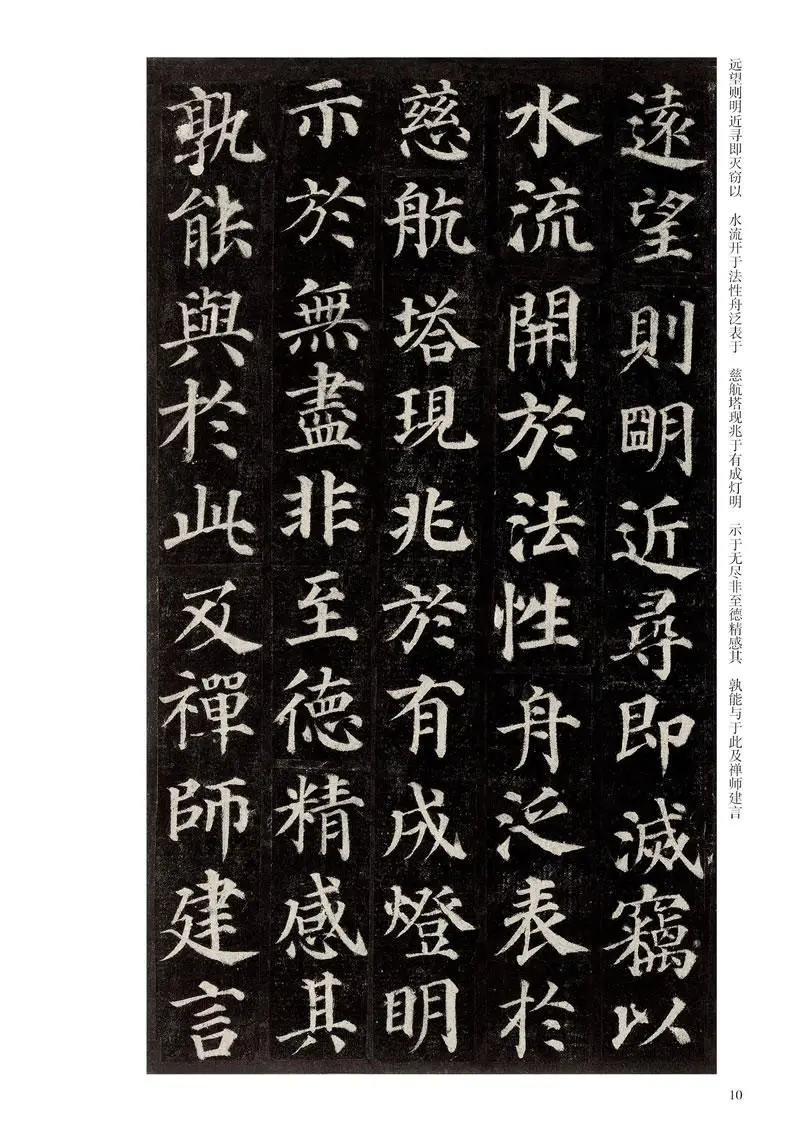 远望则明近寻即灭窃以　水流开于法性舟泛表于　慈航塔现兆于有成灯明　示于无尽非至德精感其　孰能与于此及禅师建言
遠望則明近尋即滅竊以
水流開於法性舟泛表於
慈航塔現兆於有成燈明
示於無盡非至德精感其
孰能與於此及禪師建言
10